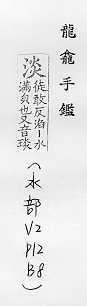 龍龕手鑑
淡徒敢反澹丨水
滿皃也又音琰
(水部
V2
P12
B8)